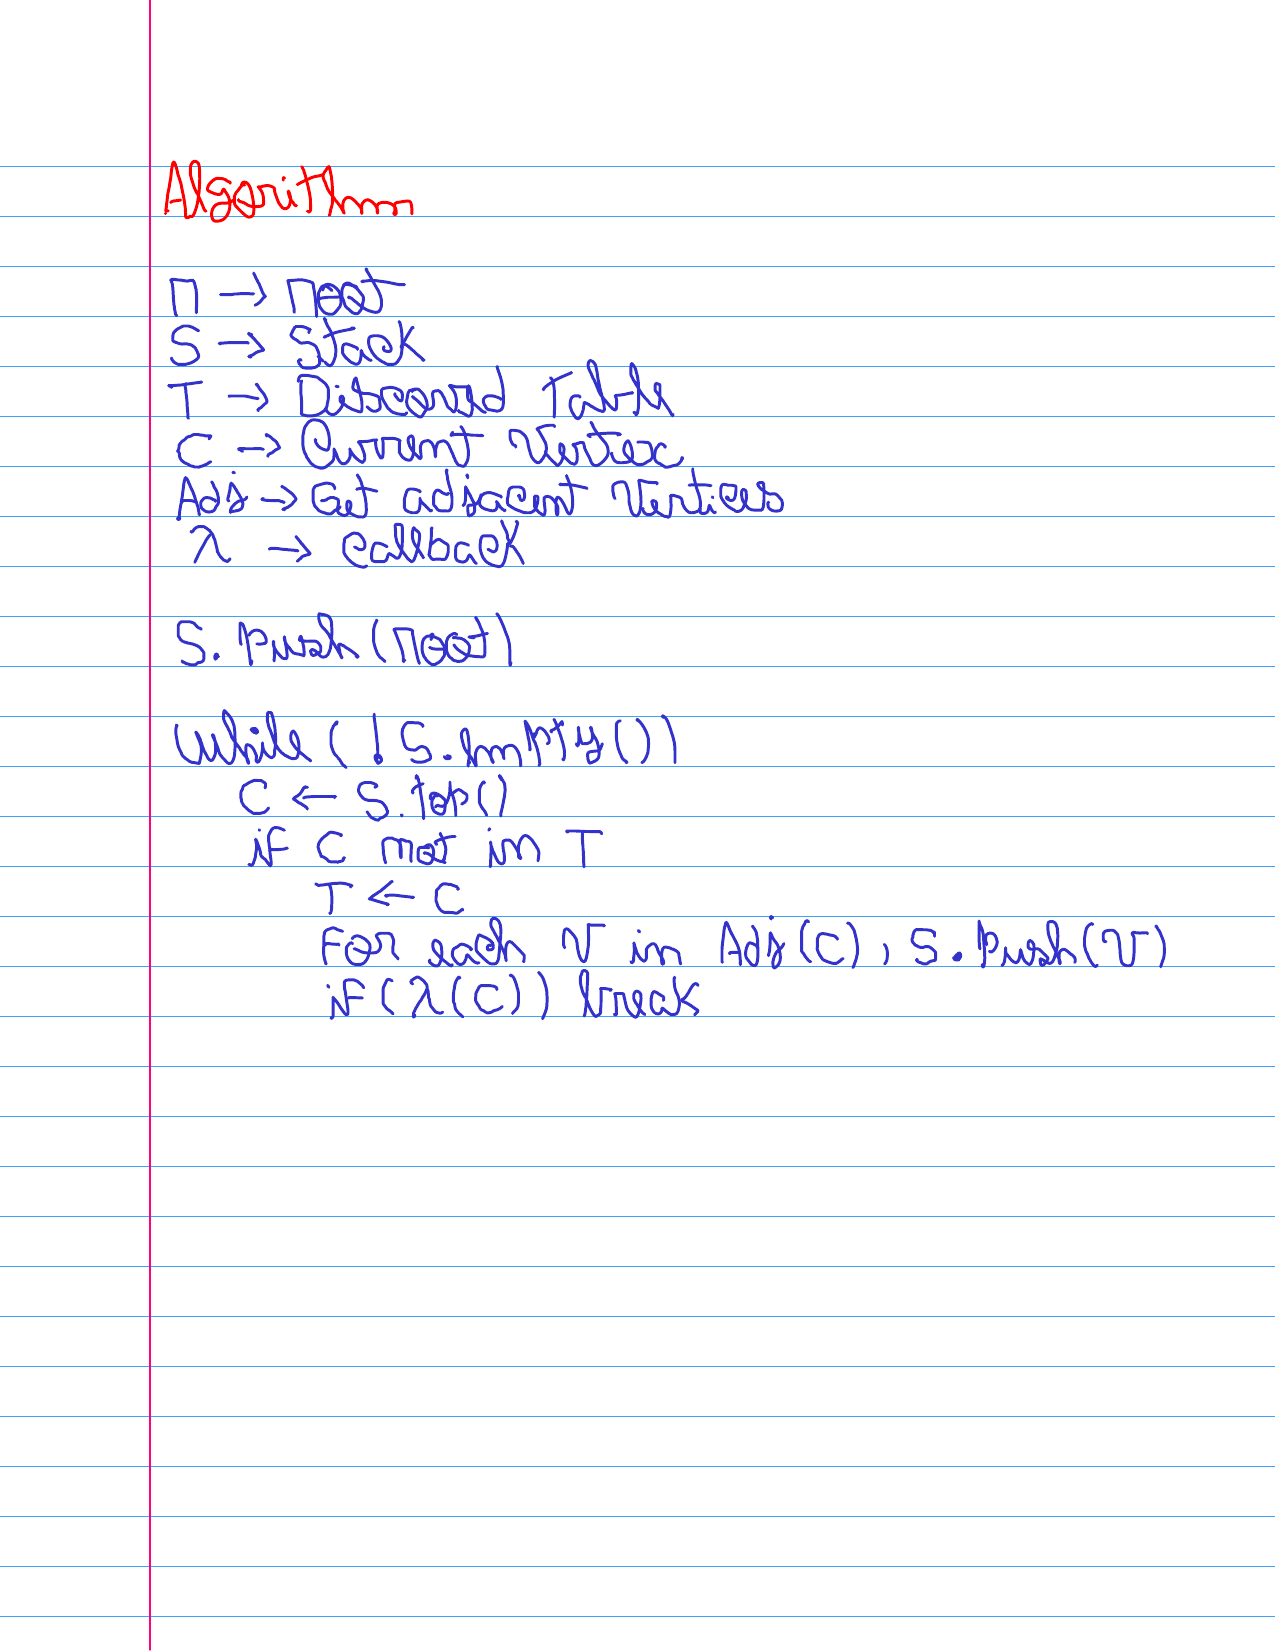 Algorithm
r → root
S → Stack
T → Discovred Table
C → Current Vertex
Adj → Get adjacent Vertices
λ → callback
S.push(root)
while(!S.empty())
C ← S.top()
if C not in T
T ← C
For each V in Adj(C), S.push(V)
if(λ(C)) break